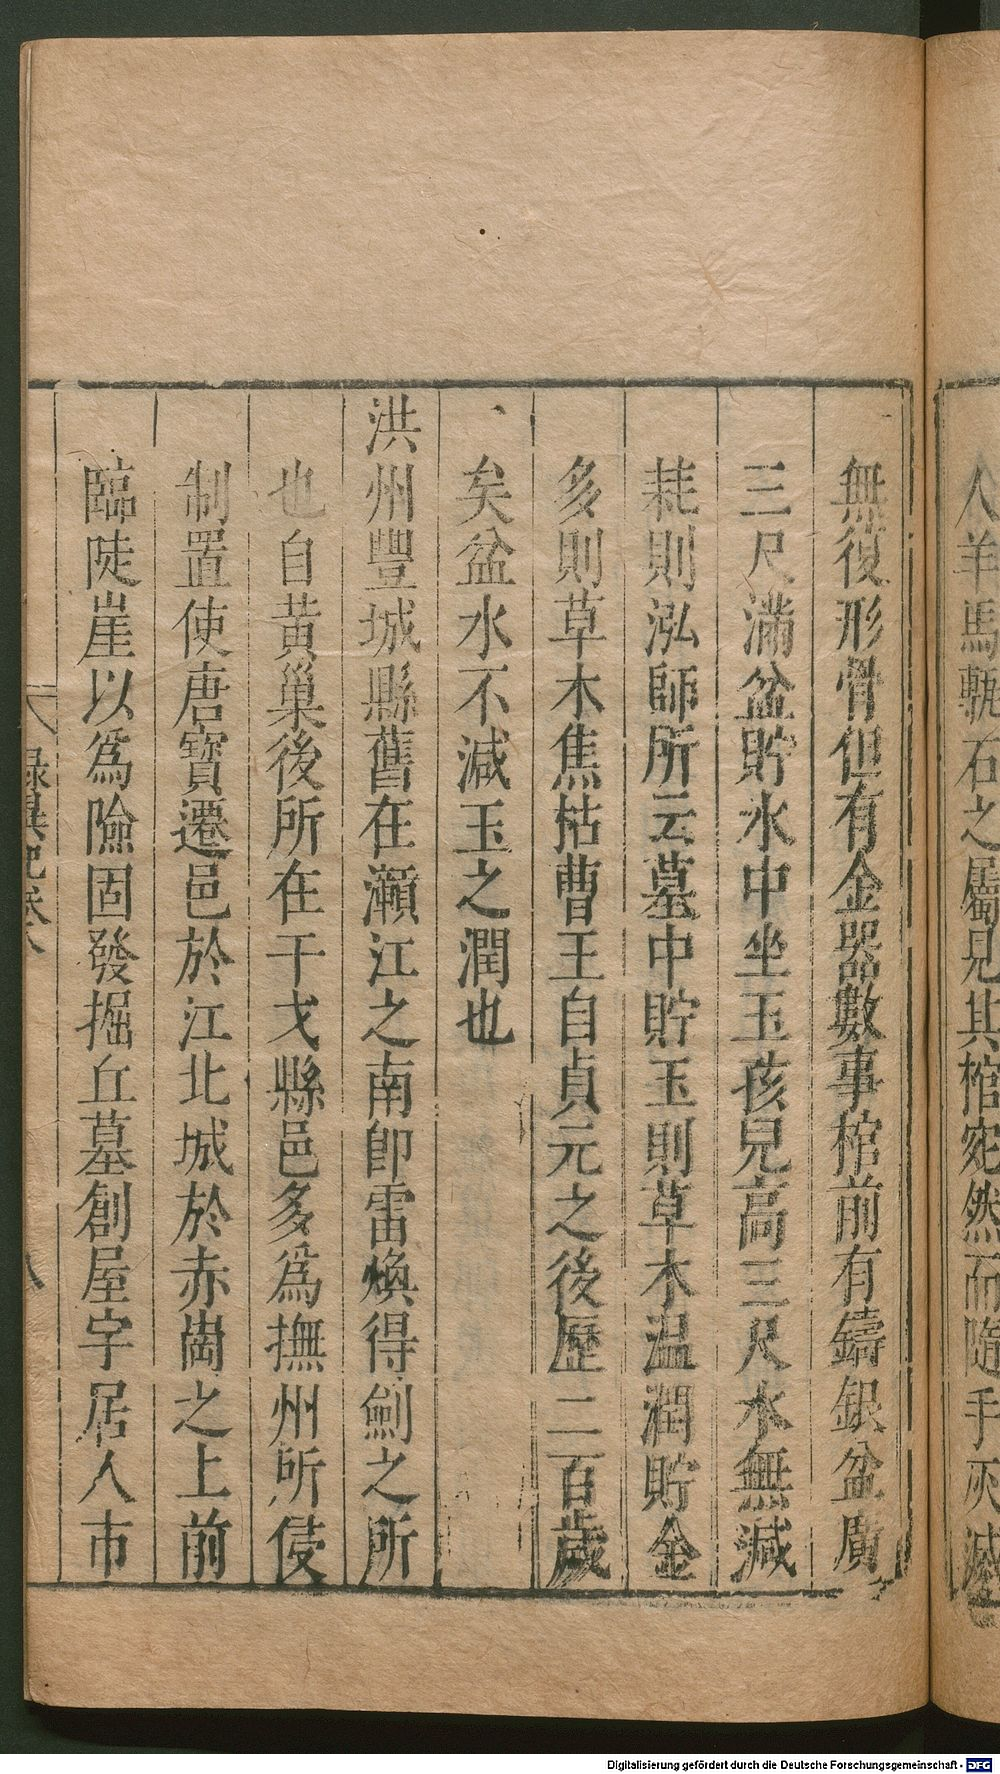 人羊馬䡄石之屬見其棺宛然而隨手灰滅
無復形骨但有金器數事棺前有鑄銀盆廣
三尺滿盆貯水中坐玉孩兒高三尺水無減
耗則泓師所云墓中貯玉則草木温潤貯金
多則草木焦枯曹王自貞元之後歷二百歲
矣盆水不減玉之潤也
洪州豐城縣舊在灝江之南卽雷煥得劍之所
也自黃巢後所在干戈縣邑多爲撫州所侵
制置使唐寶遷邑於江北城於赤崗之上前
臨陡崖以爲險固發掘丘墓創屋宇居人市
錄異記卷八
八
Digitalisierung gefördert durch die Deutsche Forschungsgemeinschaft - DFG